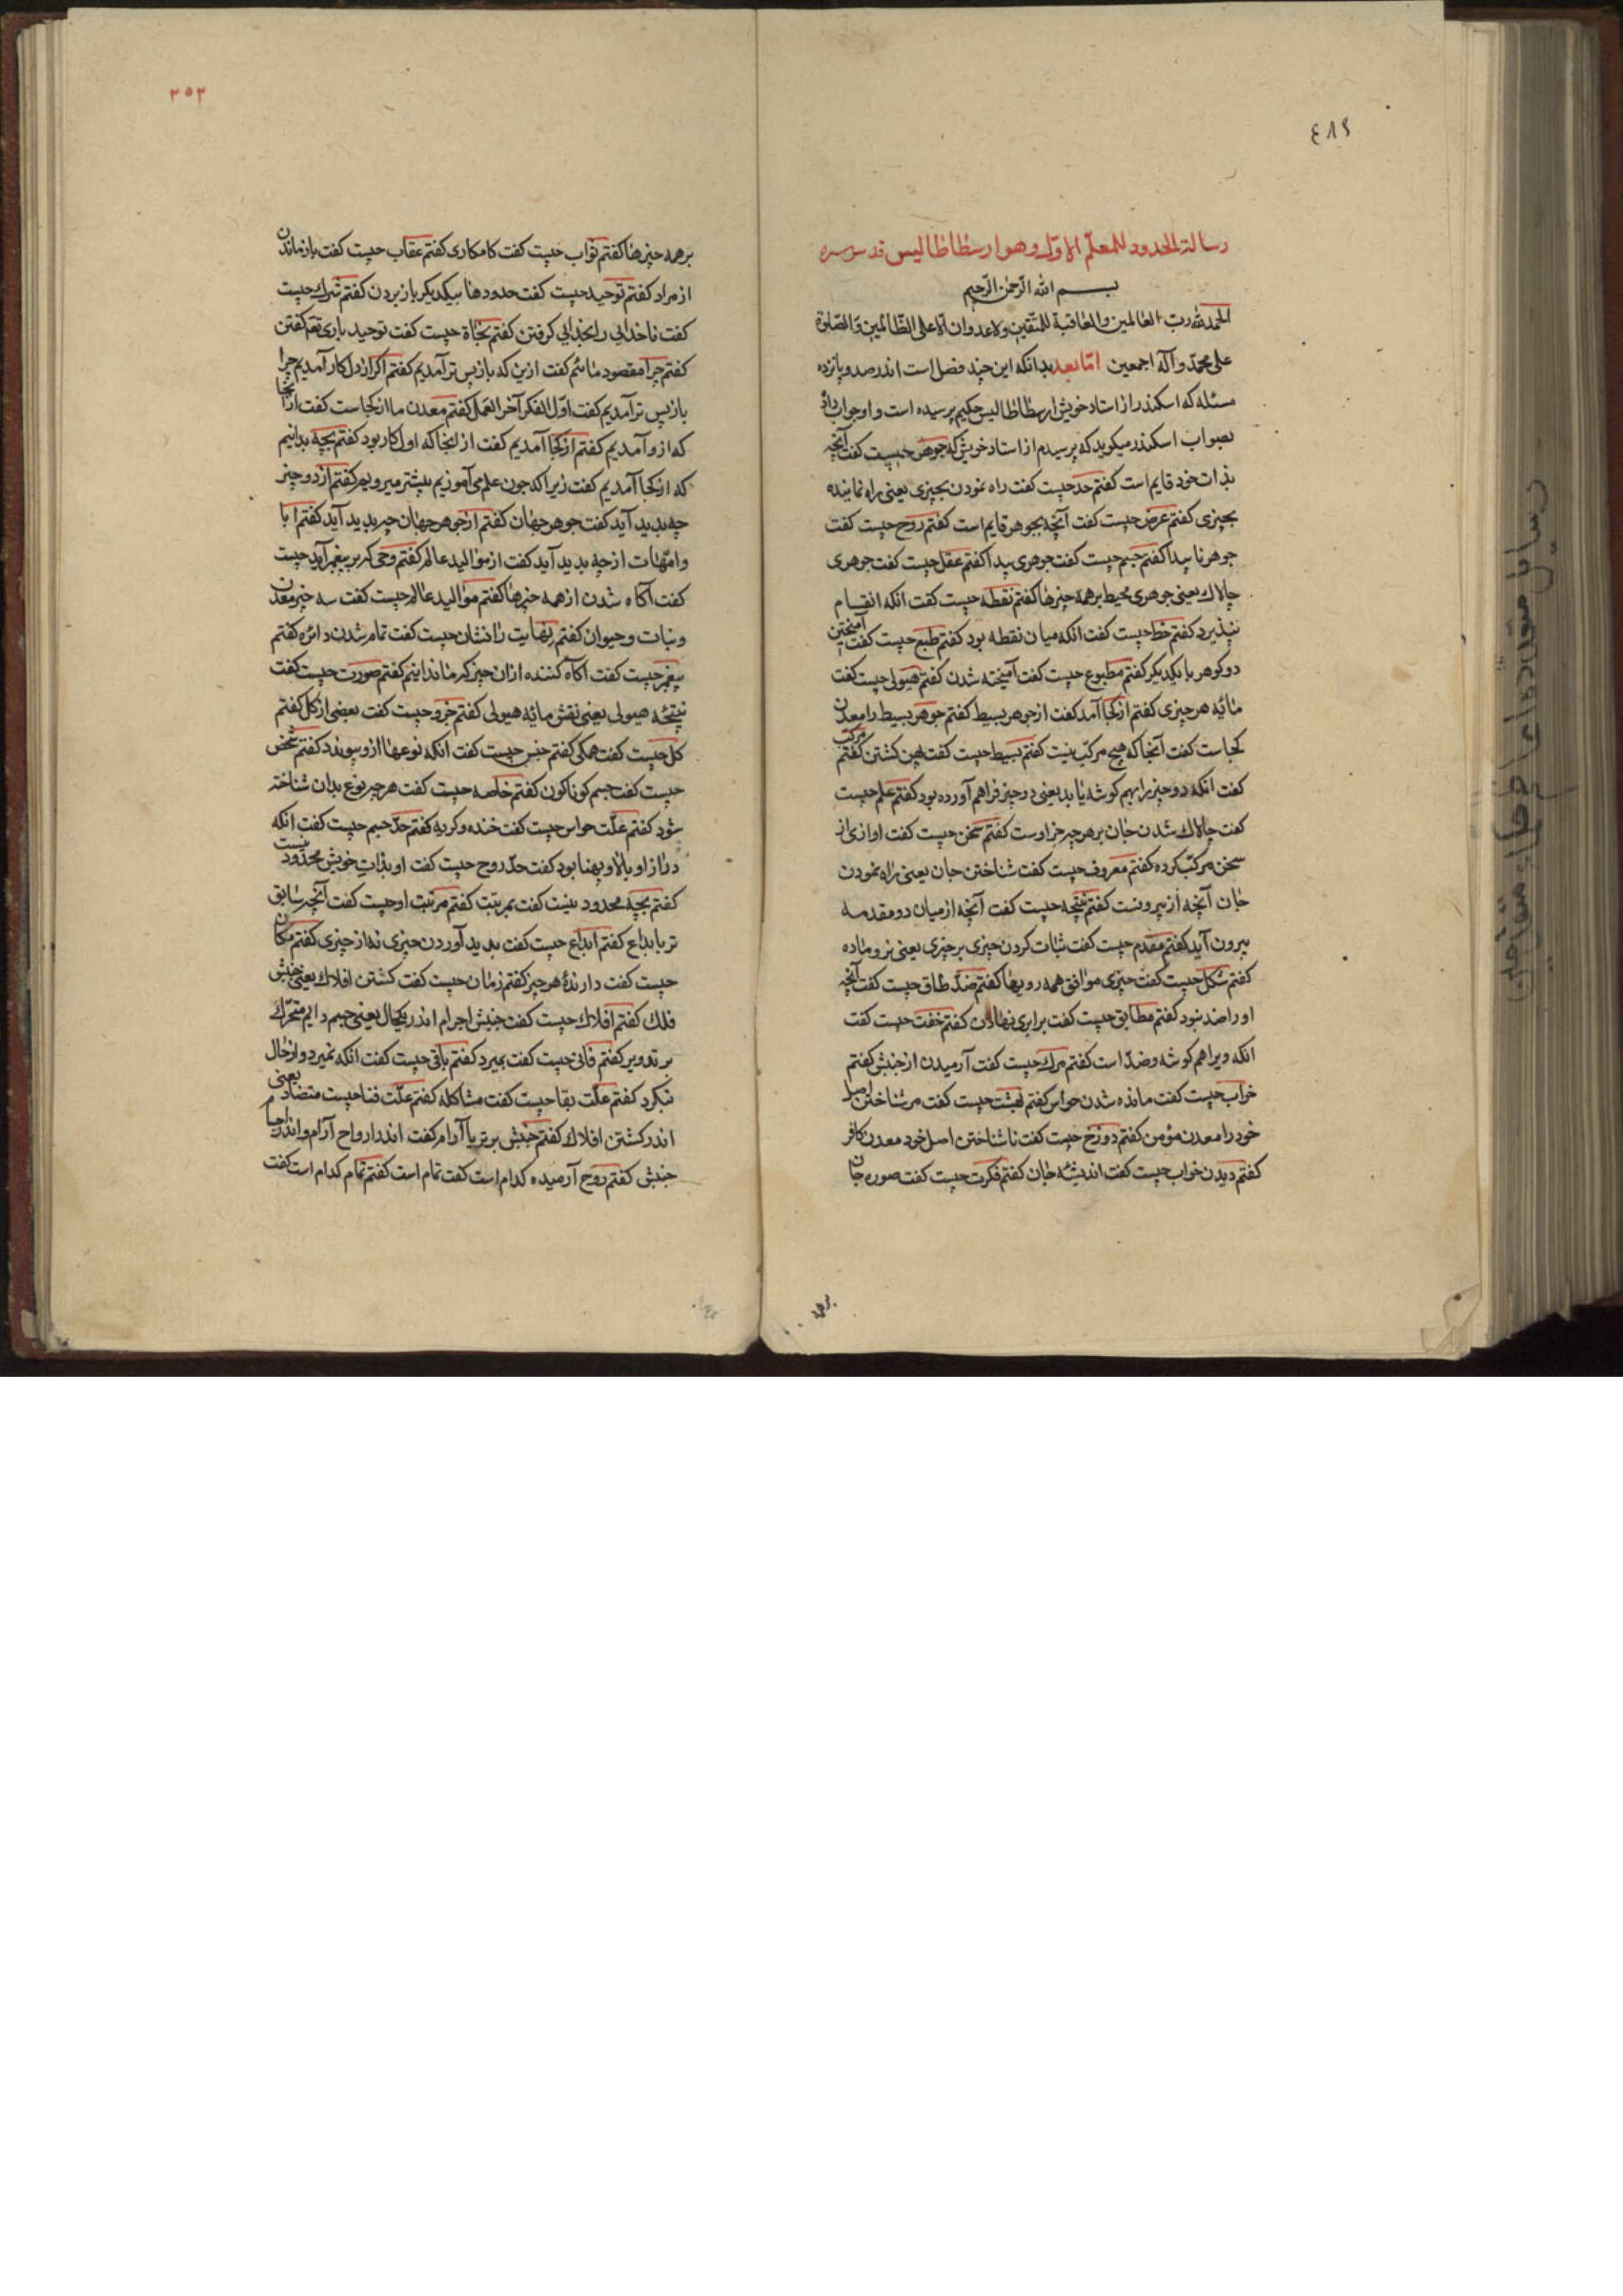 ٤٨٩
رسالة الحدود للمعلّم الاوّل وهو ارسطاطاليس قدس سره
بسم الله الرّحمن الرّحيم
الحمد لله ربّ العالمين والعاقبة للمتّقين ولا عدوان الا على الظّالمين والصّلوة
على محمّد وآله اجمعين امّا بعد بدانكه اين چند فصل است اندر صد و پانزده
مسئله كه اسكندر از استاد خويش ارسطاطاليس حكيم پرسيده است و او جواب داد
بصواب اسكندر ميكويد كه پرسيدم از استاد خويش كه جوهر چيست كفت آنچه
بذات خود قايم است كفتم حد چيست كفت راه نمودن بچيزى يعنى راه نماينده
بچيزى كفتم عرض چيست كفت آنچه بجوهر قايم است كفتم روح چيست كفت
جوهر ناپيدا كفتم جسم چيست كفت جوهرى پيدا كفتم عقل چيست كفت جوهرى
چالاك يعنى جوهرى محيط بر همه چيزها كفتم نقطه چيست كفت انكه انقسام
نپذيرد كفتم خط چيست كفت انكه ميان نقطه بود كفتم طبع چيست كفت آميختن
دو كوهر با يكديكر كفتم مطبوع چيست كفت آميخته شدن كفتم هيولى چيست كفت
مائه هر چيزى كفتم از كجا آمد كفت از جوهر بسيط كفتم جوهر بسيط را معدن
كجاست كفت آنجا كه هيچ مركّب نيست كفتم بسيط چيست كفت پهن كشتن كفتم مركّب
كفت انكه دو چيز را بهم كوشه يابد يعنى دو چيز فراهم آورده بود كفتم علم چيست
كفت چالاك شدن جان بر هر چه جز اوست كفتم سخن چيست كفت اوازى از
سخن مركّب كرده كفتم معروف چيست كفت شناختن جان يعنى راه نمودن
جان آنچه از بيرونست كفتم نتيجه چيست كفت آنچه از ميان دو مقدمه
بيرون آيد كفتم مقدم چيست كفت ثبات كردن چيزى بر چيزى يعنى نر و ماده
كفتم شكل چيست كفت چيزى موافق همه رويها كفتم ضدّ طاق چيست كفت آنچه
او را ضد نبود كفتم مطابق چيست كفت برابرى نهادن كفتم خفت چيست كفت
انكه ويرا هم كوشه وضدّ است كفتم مرك چيست كفت آرميدن از جنبش كفتم
خواب چيست كفت مانده شدن حواس كفتم بهشت چيست كفت مر شناختن اصل
خود را معدن مؤمن كفتم دوزخ چيست كفت ناشناختن اصل خود معدن كافر
كفتم ديدن خواب چيست كفت انديشهٔ جان كفتم فكرت چيست كفت صوره جان
٣٥٣
بر همه چيزها كفتم ثواب چيست كفت كامكارى كفتم عقاب چيست كفت بازماندن
از مراد كفتم توحيد چيست كفت حدودها بيكديكر باز بردن كفتم شرك چيست
كفت ناخدايى را بخدايى كرفتن كفتم نجاة چيست كفت توحيد بارى تعم كفتن
كفتم چرا مقصود مائيم كفت ازين كه بازپس تر آمديم كفتم اكر از دل كار آمديم چرا
بازپس تر آمديم كفت اوّل الفكر آخر العمل كفتم معدن ما از كجاست كفت از آنجا
كه ازو آمديم كفتم از كجا آمديم كفت از انجا كه اول كار بود كفتم بچه بدانيم
كه از كجا آمديم كفت زيرا كه چون علم مى آموزيم پيشتر ميرويم كفتم از دو چيز
چه پديد آيد كفت جوهر جهان كفتم از جوهر جهان چه پديد آيد كفتم ابا
وامّهات از چه پديد آيد كفت از مواليد عالم كفتم وحى كه بر پيغمبر آيد چيست
كفت آكاه شدن از همه چيزها كفتم مواليد عالم چيست كفت سه چيز معدن
ونبات وحيوان كفتم نهايت را نشان چيست كفت تمام شدن دائره كفتم
پيغمبر چيست كفت آكاه كننده از ان چيز كه ما ندانيم كفتم صورت چيست كفت
نتيجه هيولى يعنى نقش مائه هيولى كفتم جزو چيست كفت بعضى از كل كفتم
كل چيست كفت همكى كفتم جنس چيست كفت انكه نوعها ازو پيوندد كفتم شخص
چيست كفت جسم كوناكون كفتم خاصه چيست كفت هر چه نوع بدان شناخته
شود كفتم علّت حواس چيست كفت خنده وكريه كفتم حدّ جسم چيست كفت انكه
دراز او بالا و پهنا بود كفت حدّ روح چيست كفت او بذات خويش محدود نيست
كفتم بچه محدود نيست كفت بمرتبت كفتم مرتبت او چيست كفت آنچه سابق
تر بابداع كفتم ابداع چيست كفت پديد آوردن چيزى نه از چيزى كفتم مكان
چيست كفت دارندهٔ هر چيز كفتم زمان چيست كفت كشتن افلاك يعنى جنبش
فلك كفتم افلاك چيست كفت جنبش اجرام اندر يكحال يعنى جسم دايم متحرّك
بر تدوير كفتم فانى چيست كفت بميرد كفتم باقى چيست كفت انكه نميرد و از حال
نكردد كفتم علّت بقا چيست كفت مشاكله كفتم علّت فنا چيست متضاد يعنى
اندر كشتن افلاك كفتم جنبش برتر يا آرام كفت اندر ارواح آرام و اندر اجسام
جنبش كفتم روح آرميده كدام است كفت تمام است كفتم تمام كدام است كفت